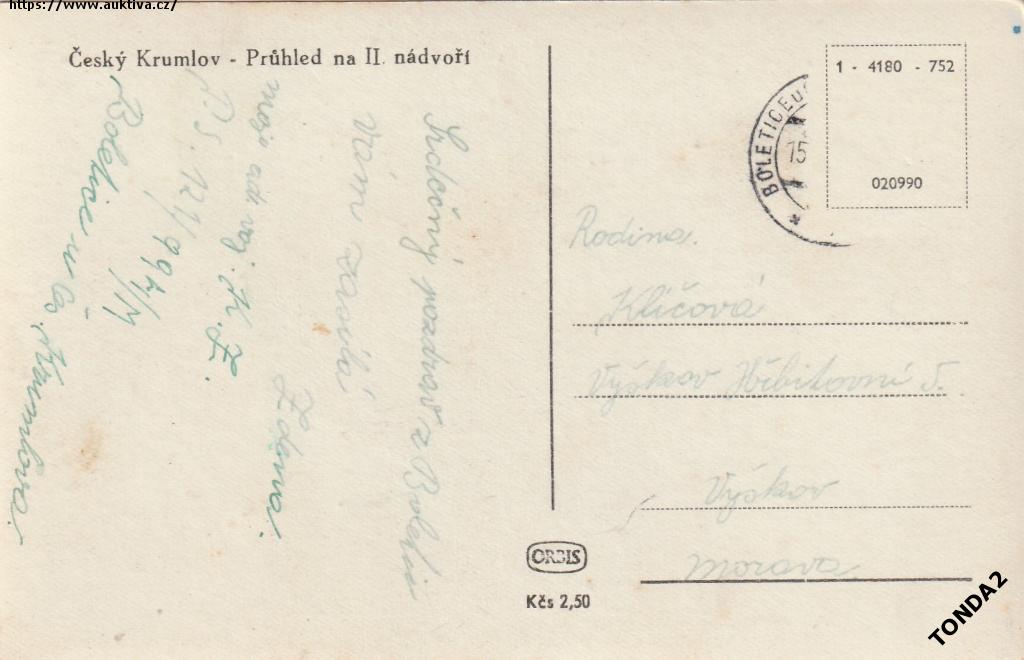 https://www.auktiva.cz/
Český Krumlov - Průhled na II. nádvoří
1 - 4180 - 752
020990
BOLETICE u
15
Srdečný pozdrav z Boletic
Vám zasílá
Zdena.
moje adr. voj. K. Z.
P.S. 121/
Boletice u Č. Krumlova.
Rodina.
Klíčová
Vyškov Hřbitovní 5.
Vyškov
Morava.
ORBIS
Kčs 2,50
TONDA2